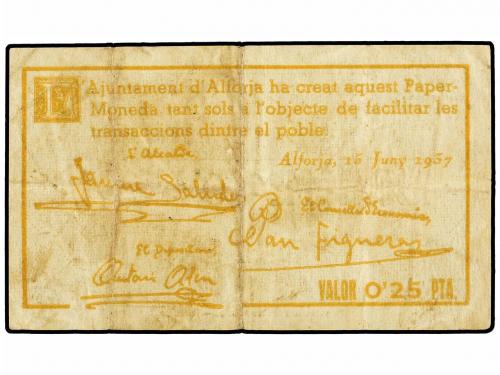 L'Ajuntament d'Alforja ha creat aquest Paper-
Moneda tant sols a l'objecte de facilitar les
transaccions dintre el poble.
Alforja, 15 Juny 1937
L'Alcalde
Jaume
El Conseller d'Economia,
Joan Figueras
El Dipositari,
VALOR 0'25 PTA.